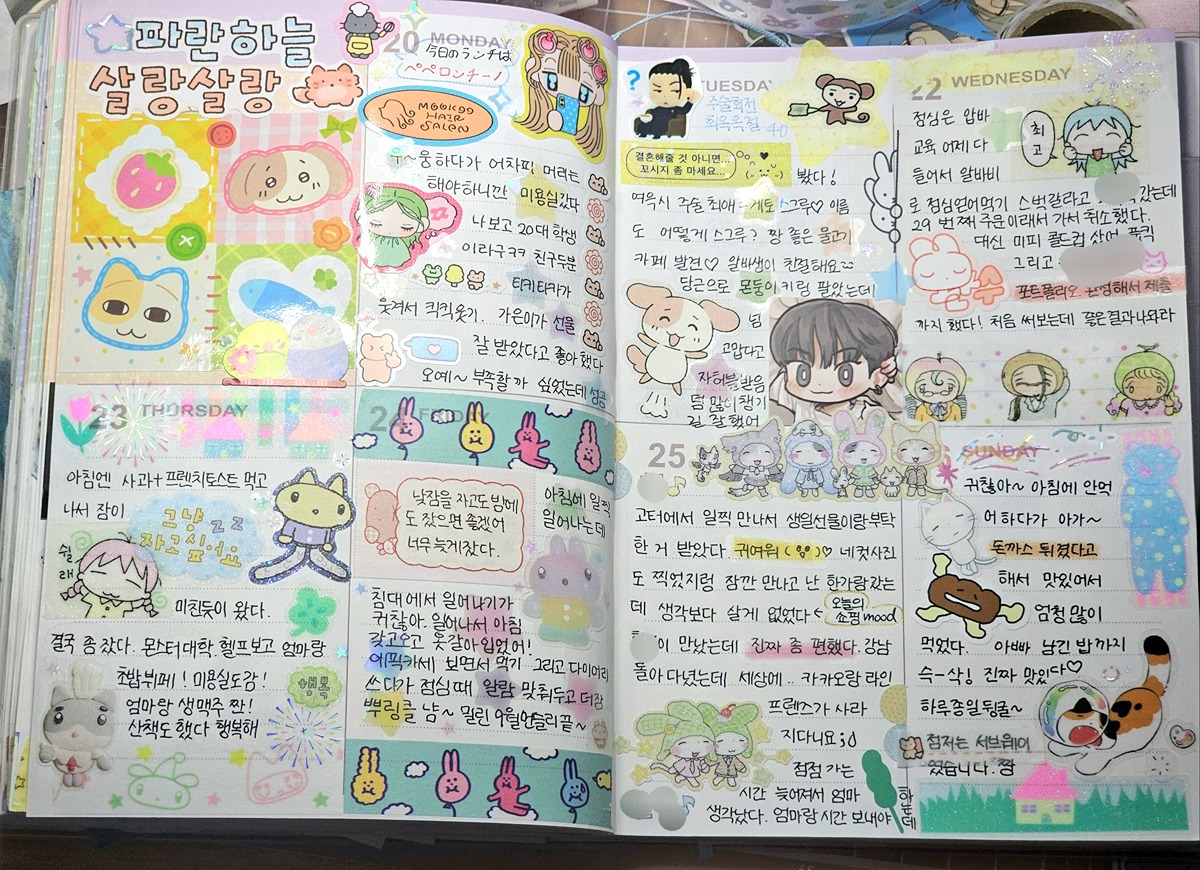 파란하늘
살랑살랑
20 MONDAY
今日のランチは
ペペロンチーノ
MOOKOO
HAIR
SALEN
우~웅하다가 어차피 머리는
해야하니깐 미용실갔다
나보고 20대 학생
이라구ㅋㅋ 친구두분
티키타카가
웃겨서 킥킥웃기. 가은이가 선물
잘 받았다고 좋아했다
오예~ 부족할까 싶었는데 성공
?
TUESDAY
주술회전
회옥옥절
결혼해줄 것 아니면...
꼬시지 좀 마세요...
봤다!
여윽시 주술 최애 게토 스그루♡ 이름
도 어떻게 스그루? 짱 좋은 물고기
카페 발견♡ 알바생이 친절해요~
당근으로 몬둥이 키링 팔았는데
넘
고맙다고
자허블 받음
덤 많이 챙기
길 잘했어
22 WEDNESDAY
점심은 압바
최고
교육 어제 다
들어서 알바비
로 점심얻어먹기 스벅갈라고 갔는데
29번 째 주문이래서 가서 취소했다.
대신 미피 콜드컵 샀어
그리고
포트폴리오 해서 제출
까지 했다! 처음 써보는데 좋은결과나와라
23 THURSDAY
아침엔 사과+프렌치토스트 먹고
나서 잠이
그냥 zz
자고싶어요
쉴래
미친듯이 왔다.
결국 좀 잤다. 몬스터대학, 헬프보고 엄마랑
초밥뷔페! 미용실도감!
행복
엄마랑 생맥주 짠!
산책도 했다 행복해
24 FRIDAY
낮잠을 자고도 밤에
도 잤으면 좋겠어
너무 늦게잤다.
아침에 일찍
일어나는데
침대에서 일어나기가
귀찮아. 일어나서 아침
갖고오고 옷갈아입었어!
에픽카세 보면서 먹기 그리고 다이어리
쓰다가 점심때 알람 맞춰두고 더장
뿌링클 냠~ 밀린 9월먼슬리 끝~
25
고터에서 일찍 만나서 생일선물이랑부탁
한 거 받았다. 귀여워 ♡ 네컷사진
도 찍었지렁 잠깐 만나고 난 한가람갔는
데 생각보다 살게 없었다
오늘의
쇼핑 mood
이 만났는데 진짜 좀 편했다. 강남
돌아 다녔는데 세상에.. 카카오랑 라인
프렌즈가 사라
지다니요;
점점 가는
시간 늦어져서 엄마
생각났다. 엄마랑 시간 보내야
하는데
SUNDAY
귀찮아~ 아침에 안먹
어하다가 아가~
돈까스 튀겼다고
해서 맛있어서
엄청많이
먹었다. 아빠 남긴 밥까지
수-삭! 진짜 맛있다♡
하루종일 뒹굴~
점저는 서브웨이
였습니다. 짱